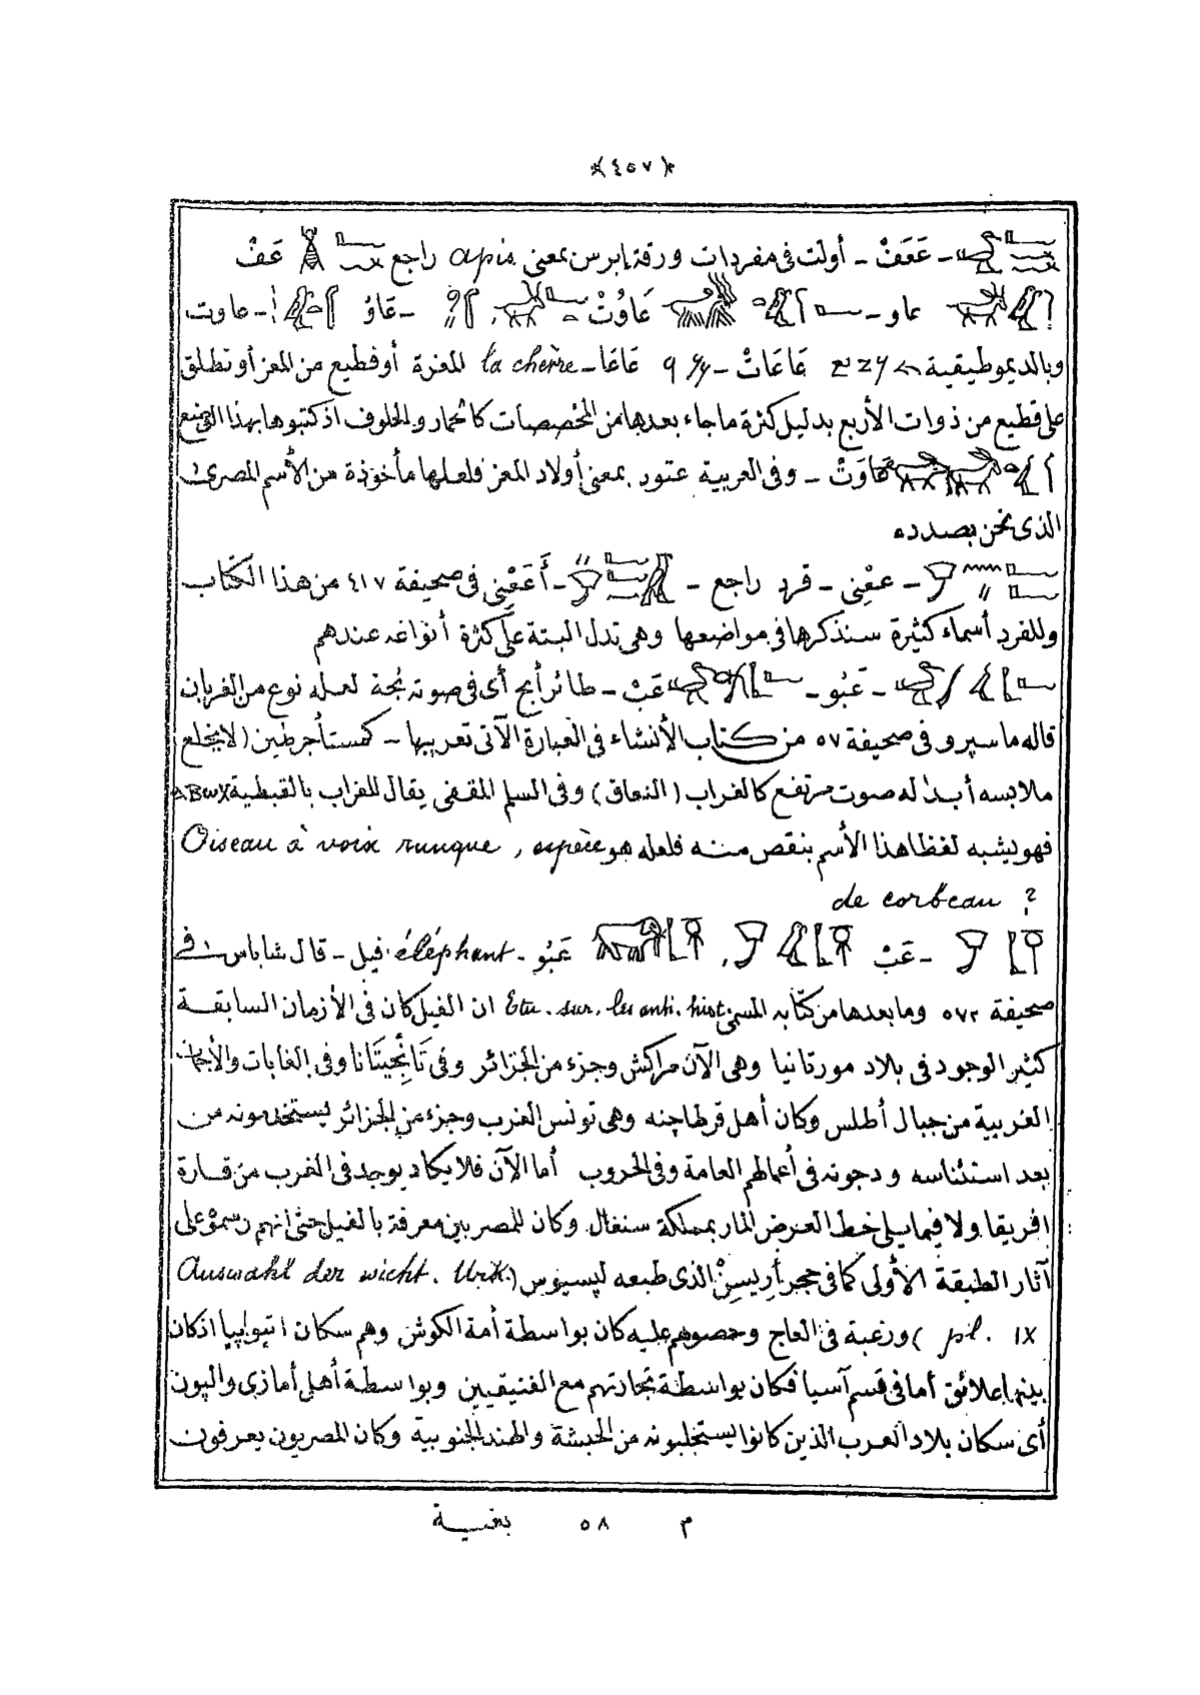 ﴿٤٥٧﴾
- عَعَفْ - أولت فى مفردات ورقة إبرس بمعنى apis راجع عَفْ
عاو - عَاوُتْ - عَاوُ - عاوت
وبالديموطيقية عَاعَاتْ - عَاعَا - la chèvre للعنزة أو قطيع من المعز أو تطلق
على قطيع من ذوات الأربع بدليل كثرة ما جاء بعدها من المخصصات كالحمار والخلوف اذ كتبوها بهذا الوضع
عَاوَتْ - وفى العربية عتود بمعنى أولاد المعز فلعلها مأخوذة من الأسم المصرى
الذى نحن بصدده
- عفْنِى - قرد راجع - - أَعَفْنِى فى صحيفة ٤١٧ من هذا الكتاب
وللقرد أسماء كثيرة سنذكرها فى مواضعها وهى تدل البتة على كثرة أنواعه عندهم
- عَبُو - عَبْ - طائر أبح أى فى صوته بُحة لعله نوع من الغربان
قاله ماسپرو فى صحيفة ٥٧ من كتاب الأنشاء فى العبارة الآتى تعريبها - كمستأجر طين (لا يخلع
ملابسه أبدا له صوت مرتفع كالغراب (النعاق) وفى السلم المقفى يقال للغراب بالقبطية ⲁⲃⲱⲕ
فهو يشبه لفظا هذا الأسم بنقص منه فلعله هو Oiseau à voix rauque, espèce
de corbeau ?
- عَبْ , عَبُو - éléphant فيل - قال شاباس فى
صحيفة ٥٧٢ وما بعدها من كتابه المسمى Etu. sur. les anti. hist ان الفيل كان فى الأزمان السابقة
كثير الوجود فى بلاد مورتانيا وهى الآن مراكش وجزء من الجزائر وفى تَانْجِيتَانا وفى الغابات والأجمات
الغربية من جبال أطلس وكان أهل قرطاجنه وهى تونس الغرب وجزء من الجزائر يستخدمونه من
بعد استئناسه ودجونه فى أعمالهم العامة وفى الحروب أما الآن فلا يكاد يوجد فى الغرب من قارة
افريقا ولا فيما يلى خط العرض المار بمملكة سنغال وكان للمصريين معرفة بالفيل حتى انهم رسموه على
آثار الطبقة الأولى كما فى حجر أريسن الذى طبعه ليسيوس (Auswahl der wicht. Urk.
pl. IX) ورغبة فى العاج وحصولهم عليه كان بواسطة أمة الكوش وهم سكان اتيوپيا اذ كان
بينهما علائق أما فى قسم آسيا فكان بواسطة تجارتهم مع الفنيقيين وبواسطة أهل أمازى والپون
أى سكان بلاد العرب الذين كانوا يستجلبونه من الحبشة والهند الجنوبية وكان المصريون يعرفون
م ٥٨ بغية